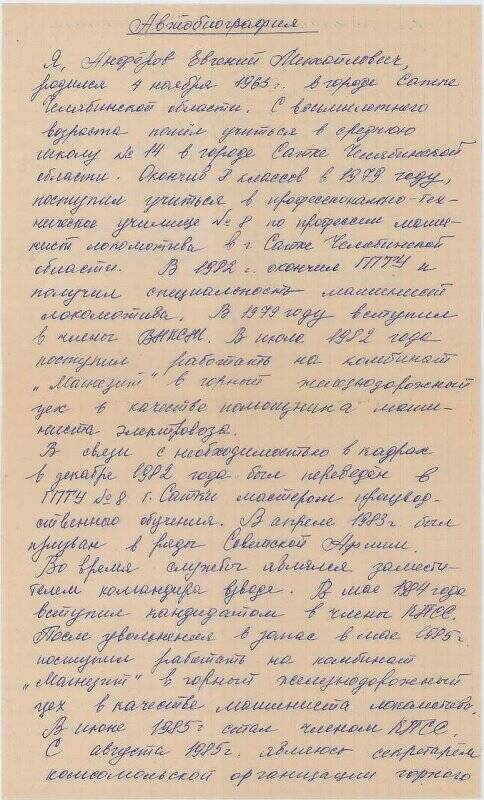 Автобиография
Я, Анфёров Евгений Михайлович,
родился 4 ноября 1963 г. в городе Сатке
Челябинской области. С восьмилетнего
возраста пошёл учиться в среднюю
школу № 14 в городе Сатке Челябинской
области. Окончив 8 классов в 1979 году,
поступил учиться в профессионально-тех-
ническое училище № 8 по профессии маши-
нист локомотива в г Сатке Челябинской
области. В 1982 г. окончил ГПТУ и
получил специальность машинист
локомотива. В 1979 году вступил
в члены ВЛКСМ. В июле 1982 года
поступил работать на комбинат
„Магнезит" в горный железнодорожный
цех в качестве помощника маши-
ниста электровоза.
В связи с необходимостью в кадрах
в декабре 1982 года был переведён в
ГПТУ № 8 г. Сатки мастером производ-
ственного обучения. В апреле 1983 г был
призван в ряды Советской Армии.
Во время службы являлся замести-
телем командира взвода. В мае 1984 года
вступил кандидатом в члены КПСС.
После увольнения в запас в мае 1985г.
поступил работать на комбинат
„Магнезит" в горный железнодорожный
цех в качестве машиниста локомотива.
В июне 1985г стал членом КПСС.
С августа 1985г. являюсь секретарём
комсомольской организации горного